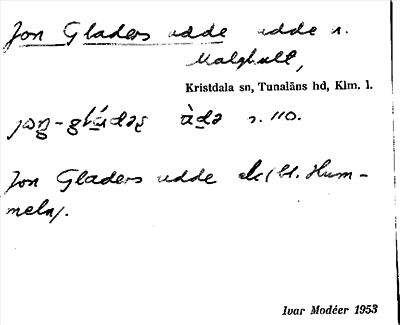 Jon Gladers udde udde n.
Malghult,
Kristdala sn, Tunaläns hd, Klm. l.
s. 110.
Jon Gladers udde ek (bl. Hum-
meln).
Ivar Modéer 1953